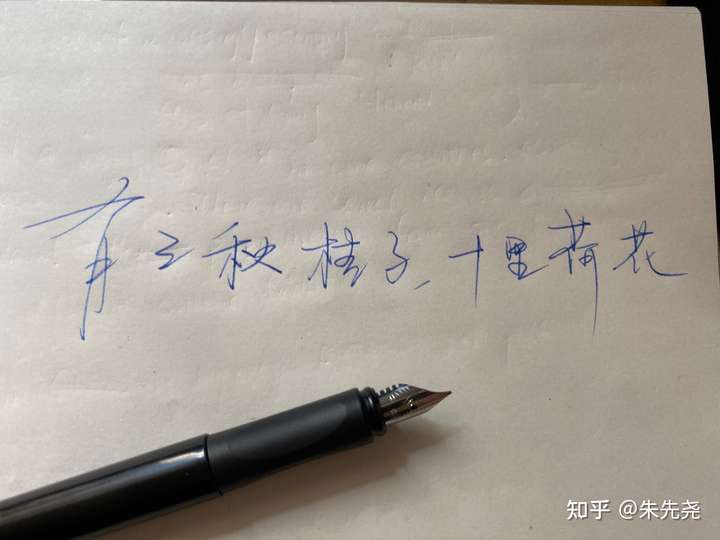 有三秋桂子,十里荷花
知乎 @朱先尧